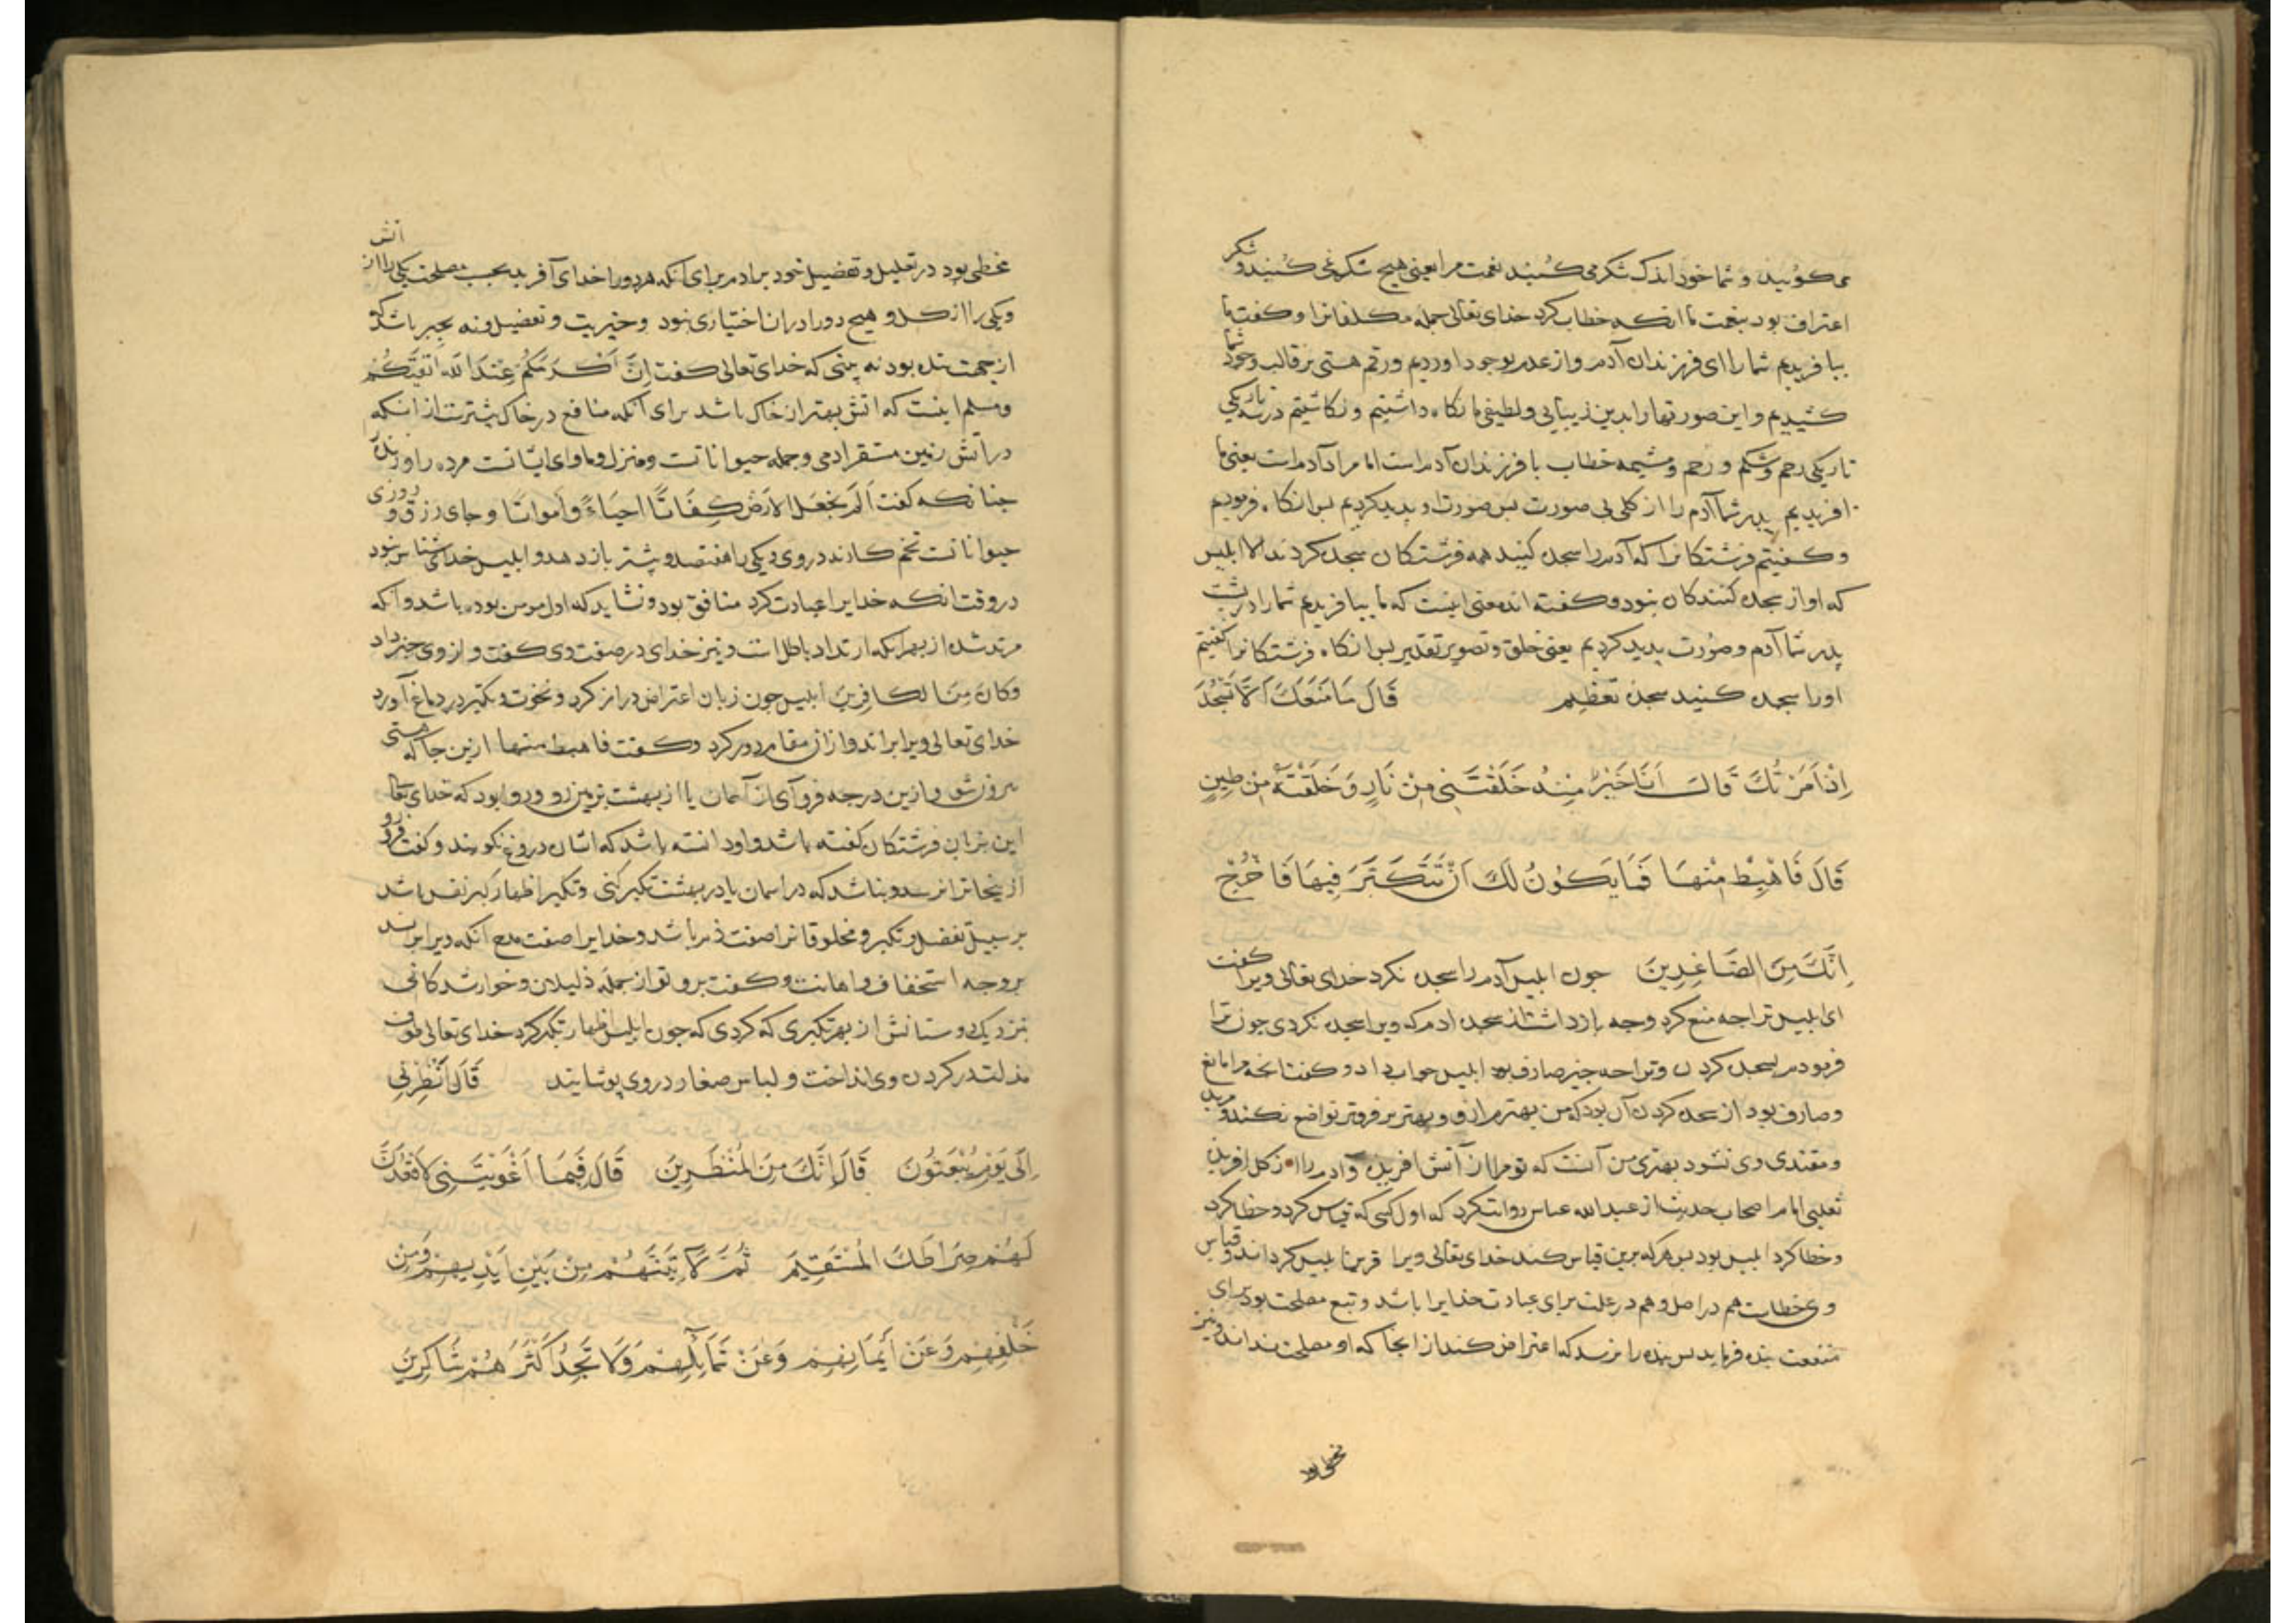 می کوئید و شما خود اندک شکر می کنید نعمت مرا یعنی هیچ شکر نمی کنید و شکر
اعتراف بود بنعمت با انکه خطاب کرد خدای تعالی جمله مکلفانرا و کفت ما
بیافریدیم شما را ای فرزندان آدم و از عدم بوجود اوردیم و رقم هستی بر قالب وجود شما
کشیدیم و این صورتها را بدین زیبایی و لطیفی ما نکاه داشتیم و نکاشتیم در سه تاریکی
تاریکی رحم و شکم و مشیمه خطاب با فرزندان آدم است اما مراد آدم است یعنی ما
افریدیم پدر شما آدم را از کلی بی صورت پس صورت او پدید کردیم پس انکاه فرمودیم
و کفتیم فرشتکانرا که آدم را سجده کنید همه فرشتکان سجده کردند الا ابلیس
که او از سجده کنندکان نبود و کفته اند معنی اینست که ما بیافریدیم شما را در پشت
پدر شما آدم و صورت پدید کردیم یعنی خلق و تصویر تقدیر پس انکاه فرشتکانرا کفتیم
اورا سجده کنید سجده تعظیم قَالَ مَا مَنَعَكَ اَلَّا تَسْجُدَ
اِذْ اَمَرْتُكَ قَالَ اَنَا خَيْرٌ مِنْهُ خَلَقْتَنِي مِنْ نَارٍ وَخَلَقْتَهُ مِنْ طِينٍ
قَالَ فَاهْبِطْ مِنْهَا فَمَا يَكُونُ لَكَ اَنْ تَتَكَبَّرَ فِيهَا فَاخْرُجْ
اِنَّكَ مِنَ الصَّاغِرِينَ جون ابلیس آدم را سجده نکرد خدای تعالی ویرا کفت
ای ابلیس ترا جه منع کرد وجه بازداشت از سجده ادم که ویرا سجده نکردی جون ترا
فرمودم بسجده کردن و ترا جه جیز صارف بود ابلیس جواب داد و کفت انجه مرا مانع
و صارف بود از سجده کردن آن بود که من بهترم از و و بهتر بر فروتر تواضع نکند و مرید
و مقتدی وی نشود بهتری من آنست که تو مرا از آتش افریدی و آدم را از کل افریدی
ثعلبی امام اصحاب حدیث از عبدالله عباس روایت کرد که اول کسی که قیاس کرد و خطا کرد
و خطا کرد ابلیس بود پس هر که بدین قیاس کند خدای تعالی ویرا قرین ابلیس کرداند و قیاس
وی خطاست هم در اصل و هم در علت برای عبادت خدایرا باشد و تبع مصلحت بود برای
منفعت بنده فرماید پس بنده را نرسد که اعتراض کند از انجا که او مصلحت نداند و نیز
مخطی بود
مخطی بود در تعلیل و تفضیل خود بر ادم برای آنکه هر دو را خدای آفرید بحسب مصلحت یکی را از آتش
و یکی را از کل و هیج دو را در ان اختیاری نبود و خیریت و تفضیل و نه بجیز باشد کو
از جهت بتله بود نه بینی که خدای تعالی کفت اِنَّ اَكْرَمَكُمْ عِنْدَ اللهِ اَتْقَيكُمْ
و مسلم اینست که اتش بهتر از خاک باشد برای آنکه منافع در خاک بیشترست از انکه
در اتش زمین مستقر ادمی و جمله حیواناتست و منزل و ماوای ایشانست مرده را و زنده را
جنانکه کفت اَلَمْ نَجْعَلِ الْاَرْضَ كِفَاتًا اَحْيَاءً وَاَمْوَاتًا و جای رزق و روزی
حیواناتست تخم کارند در وی یکی را هفتصد و بیشتر باز دهد و ابلیس خدای شناس نبود
در وقت انکه خدایرا عبادت کرد منافق بود و نشاید که اول مومن بوده باشد و آنکه
مرتد شده از بهر انکه ارتداد باطل است و نیز خدای در صفت وی کفت و از وی خبر داد
وَكَانَ مِنَ الْكَافِرِينَ ابلیس جون زبان اعتراض دراز کرد و نخوت و تکبر در دماغ آورد
خدای تعالی ویرا براند و از ان مقام دور کرد و کفت فاهبط منها ازین جا که هستی
بیرون شو و ازین درجه فروآی از آسمان یا از بهشت بزمین رو و روا بود که خدای تعالی
این بزبان فرشتکان کفته باشد و او دانسته باشد که اشان دروغ نکویند و کفت فرو رو
ازینجا ترا نرسد و نباشد که در اسمان یا در بهشت تکبر کنی و تکبر اظهار کبر نفس باشد
بر سبیل تفضل و تکبر و مخلوقانرا صفت ذم باشد و خدایرا صفت مدح آنکه ویرا براند
بر وجه استخفاف و اهانت و کفت برو تو از جمله ذلیلان و خوارشدکانی
بنزدیک دوستانش از بهر تکبری که کردی که جون ابلیس اظهار تکبر کرد خدای تعالی طوق
مذلت در کردن وی انداخت و لباس صغار در وی پوشانید قَالَ اَنْظِرْنِي
اِلَى يَوْمِ يُبْعَثُونَ قَالَ اِنَّكَ مِنَ الْمُنْظَرِينَ قَالَ فَبِمَا اَغْوَيْتَنِي لَاَقْعُدَنَّ
لَهُمْ صِرَاطَكَ الْمُسْتَقِيمَ ثُمَّ لَاٰتِيَنَّهُمْ مِنْ بَيْنِ اَيْدِيهِمْ وَمِنْ
خَلْفِهِمْ وَعَنْ اَيْمَانِهِمْ وَعَنْ شَمَائِلِهِمْ وَلَا تَجِدُ اَكْثَرَهُمْ شَاكِرِينَ